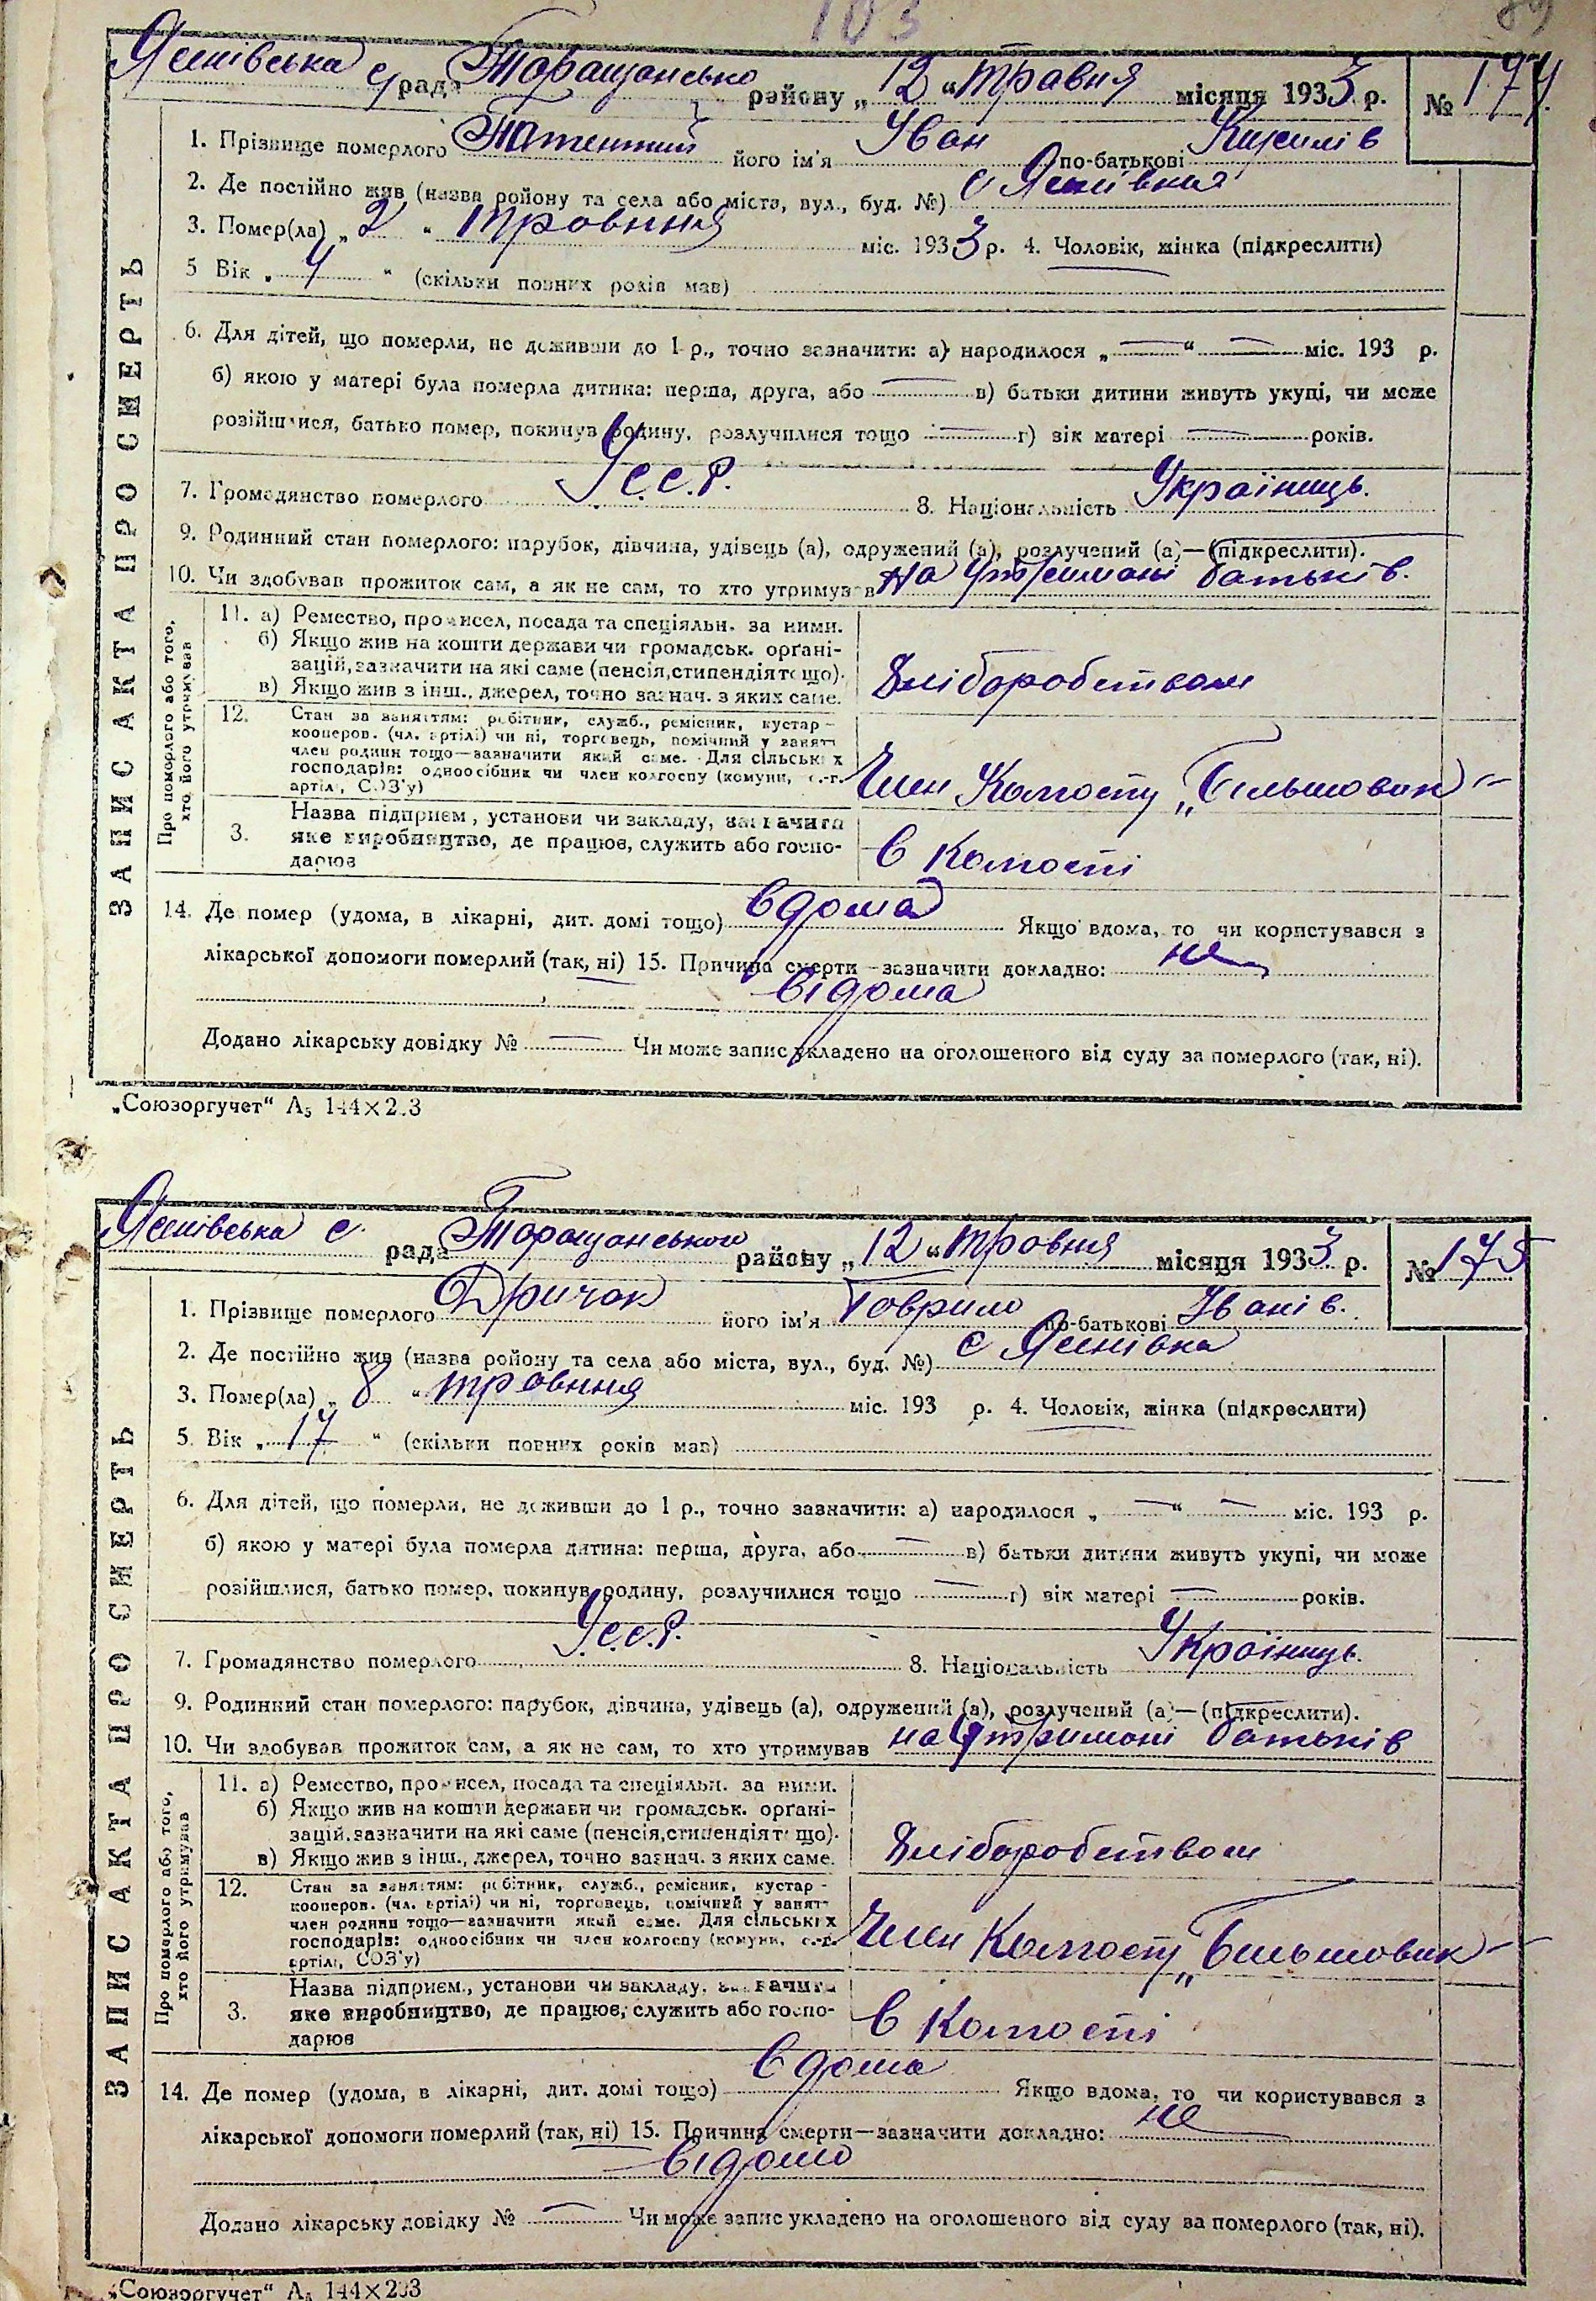 103
89
Яснівська с рада Таращансько району „ 12 “ травня місяця 1933 р. № 174
1. Прізвище померлого його ім'я Іван по-батькові
2. Де постійно жив (назва району та села або міста, вул., буд. №) с Яснівка
3. Помер(ла) „ 2 “ травння міс. 1933 р. 4. Чоловік, жінка (підкреслити)
5 Вік „ 4 “ (скільки повних років мав)
6. Для дітей, що померли, не доживши до 1 р., точно зазначити: а) народилося „ — “ — міс. 193 р.
б) якою у матері була померла дитина: перша, друга, або — в) батьки дитини живуть укупі, чи може
розійшлися, батько помер, покинув родину, розлучилися тощо — г) вік матері — років.
7. Громадянство померлого У.С.С.Р. 8. Національність Українець.
9. Родинний стан померлого: парубок, дівчина, удівець (а), одружений (а), розлучений (а)—(підкреслити).
10. Чи здобував прожиток сам, а як не сам, то хто утримував на утримані батьків.
ЗАПИС АКТА ПРО СМЕРТЬ
Про померлого або того,
хто його утримував
11. а) Ремество, промисел, посада та спеціяльн. за ними.
б) Якщо жив на кошти держави чи громадськ. орґані-
зацій, зазначити на які саме (пенсія, стипендія тощо).
в) Якщо жив з інш., джерел, точно зазнач. з яких саме.
Хліборобством
12. Стан за заняттям: робітник, служб., ремісник, кустар -
кооперов. (чл. артілі) чи ні, торговець, помічний у занятт
член родини тощо—зазначити який саме. Для сільських
господарів: одноосібник чи член колгоспу (комуни, с.-г.
артілі, СОЗ'у)
Член Колгоспу „Більшовик"
3. Назва підприєм, установи чи закладу, зазначити
яке виробництво, де працює, служить або госпо-
дарює
в Колгоспі
14. Де помер (удома, в лікарні, дит. домі тощо) вдома Якщо вдома, то чи користувався з
лікарської допомоги померлий (так, ні) 15. Причина смерти—зазначити докладно: не
відома
Додано лікарську довідку № — Чи може запис укладено на оголошеного від суду за померлого (так, ні).
„Союзоргучет“ А₅ 144×203
Яснівська с. рада Таращанського району „ 12 “ травня місяця 1933 р. № 175
1. Прізвище померлого Дричак його ім'я Гаврило по-батькові Іванів.
2. Де постійно жив (назва району та села або міста, вул., буд. №) с Яснівка
3. Помер(ла) „ 8 “ травння міс. 193 р. 4. Чоловік, жінка (підкреслити)
5. Вік „ 17 “ (скільки повних років мав)
6. Для дітей, що померли, не доживши до 1 р., точно зазначити: а) народилося „ — “ — міс. 193 р.
б) якою у матері була померла дитина: перша, друга, або — в) батьки дитини живуть укупі, чи може
розійшлися, батько помер, покинув родину, розлучилися тощо — г) вік матері — років.
7. Громадянство померлого У.С.С.Р. 8. Національність Українець.
9. Родинний стан померлого: парубок, дівчина, удівець (а), одружений (а), розлучений (а)—(підкреслити).
10. Чи здобував прожиток сам, а як не сам, то хто утримував на утримані батьків
ЗАПИС АКТА ПРО СМЕРТЬ
Про померлого або того,
хто його утримував
11. а) Ремество, промисел, посада та спеціяльн. за ними.
б) Якщо жив на кошти держави чи громадськ. орґані-
зацій, зазначити на які саме (пенсія, стипендія тощо).
в) Якщо жив з інш., джерел, точно зазнач. з яких саме.
Хліборобством
12. Стан за заняттям: робітник, служб., ремісник, кустар -
кооперов. (чл. артілі) чи ні, торговець, помічний у занятт
член родини тощо—зазначити який саме. Для сільських
господарів: одноосібник чи член колгоспу (комуни, с.-г.
артілі, СОЗ'у)
Член Колгоспу „Більшовик"
3. Назва підприєм., установи чи закладу, зазначити
яке виробництво, де працює, служить або госпо-
дарює
в Колгоспі
14. Де помер (удома, в лікарні, дит. домі тощо) вдома Якщо вдома, то чи користувався з
лікарської допомоги померлий (так, ні) 15. Причина смерти—зазначити докладно: не
відомо
Додано лікарську довідку № — Чи може запис укладено на оголошеного від суду за померлого (так, ні).
„Союзоргучет“ А₅ 144×203